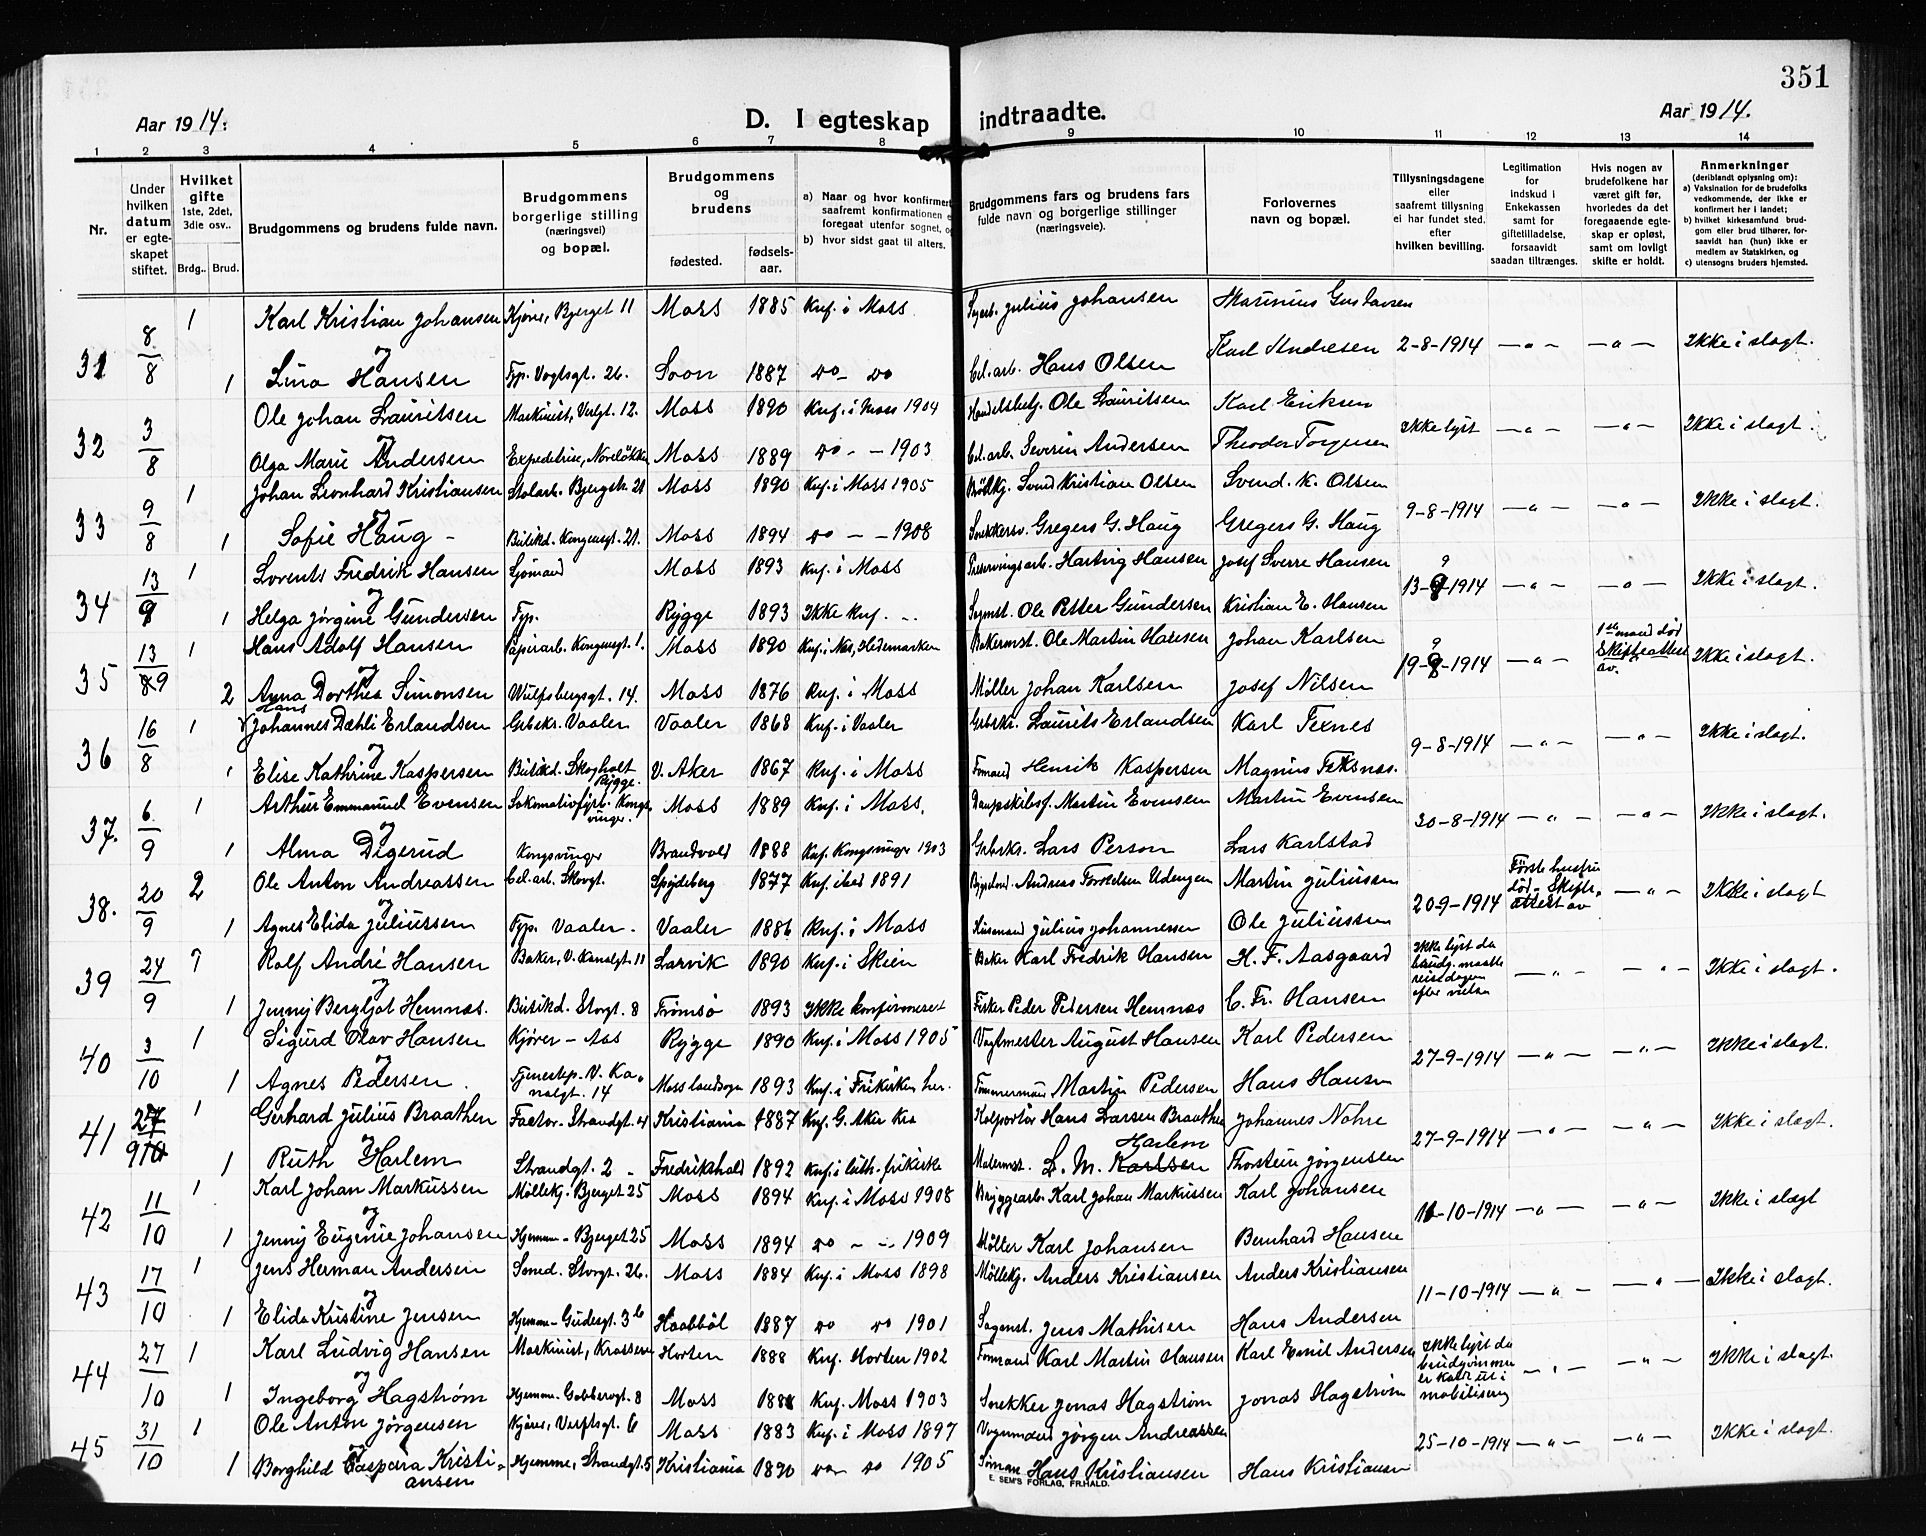 351
Aar 1914. D. I egteskap indtraadte. Aar 1914.
1 2 3 4 5 6 7 8 9 10 11 12 13 14
Nr.
Under hvilken datum er egteskapet stiftet.
Hvilket gifte 1ste, 2det, 3die osv..
Brdg.. Brud.
Brudgommens og brudens fulde navn.
Brudgommens borgerlige stilling (næringsvei) og bopæl.
Brudgommens og brudens
fødested. fødselsaar.
a) Naar og hvor konfirmert saafremt konfirmationen er foregaat utenfor sognet, og
b) hvor sidst gaat til alters.
Brudgommens fars og brudens fars fulde navn og borgerlige stillinger (næringsveie).
Forlovernes navn og bopæl.
Tillysningsdagene eller saafremt tillysning ei har fundet sted. efter hvilken bevilling.
Legitimation for indskud i Enkekassen samt for giftetilladelse, forsaavidt saadan tiltrænges.
Hvis nogen av brudefolkene har været gift før, hvorledes da det foregaaende egteskap er opløst, samt om lovligt skifte er holdt.
Anmerkninger (deriblandt oplysning om):
a) Vaksination for de brudefolks vedkommende, der ikke er konfirmert her i landet;
b) hvilket kirkesamfund brudgom eller brud tilhører, forsaavidt han (hun) ikke er medlem av Statskirken, og
c) utensogns bruders hjemsted.
31 8/8 1 Karl Kristian Johansen Kjører, Bjerget 11 Moss 1885 Knf. i Moss Julius Johansen Marinius Gustavsen
og 2-8-1914 — " — — " — Ikke i slagt.
1 Lina Hansen Fyp. Vogtsgt. 26. Soon 1887 do — do Cel. arb. Hans Olsen Karl Andresen
32 3/8 Ole Johan Lauritsen Maskinist, Verlgt. 12. Moss 1890 Knf. i Moss 1904 Handelsbetj. Ole Lauritsen Karl Eriksen
og Ikke lyst — " — — " — Ikke i slagt.
Olga Marie Andersen Expeditrise, Noreløkken Moss 1889 do — — 1903 Cel. arb. Severin Andersen Theodor Torgersen
33 9/8 1 Johan Leonhard Kristiansen Stolarb. Bjergst. 21 Moss 1890 Knf. i Moss 1905 Svend Kristian Olsen Svend. K. Olsen
og 9-8-1914 — " — — " — Ikke i slagt.
1 Sofie Haug — Butikd. Kongensgt. 21. Moss 1894 do — — 1908 Snekkersv. Gregers G. Haug Gregers G. Haug
34 13/9 1 Lorents Fredrik Hansen Sjømand Moss 1893 Knf. i Moss Preserveringsarb. Hartvig Hansen Josef Sverre Hansen
og 13-9-1914 — " — — " — Ikke i slagt.
1 Helga Jørgine Gundersen Fyp. Rygge 1893 Ikke knf. Sagmst. Ole Petter Gundersen Kristian E. Hansen
35 13/9 1 Hans Adolf Hansen Papirarb. Kongensgt. 1. Moss 1890 Knf. i Nes, Hedemarken Bakermst. Ole Martin Hansen Johan Karlsen
og 19-9-1914 — " — 1ste mand død Skifteattest av. Ikke i slagt.
2 Anna Dorthea Simonsen Wulfsbergsgt. 14. Moss 1876 Knf. i Moss Møller Johan Karlsen Josef Nilsen
36 16/8 1 Hans Johannes Dæhli Erlandsen Grbskr. Vaaler Vaaler 1868 Knf. i Vaaler Grbskr. Laurits Erlandsen Karl Texnes
og 9-8-1914 — " — — " — Ikke i slagt.
1 Elise Kathrine Kaspersen Butikd. Skogholt Rygge. V. Aker 1867 Knf. i Moss Formand Henrik Kaspersen Magnus Teksnæs.
37. 6/9 1 Arthur Emmanuel Evensen Lokomotivfyrb. Kongsvinger. Moss 1889 Knf. i Moss. Dampskibsf. Martin Evensen Martin Evensen
og 30-8-1914 — " — — " — Ikke i slagt.
1 Alma Digerud Kongsvinger Brandvold 1888 Knf. Kongsvinger 1903 Grbrkr. Lars Person Lars Karlstad
38. 20/9 2 Ole Anton Andreassen Cel. arb. Skovgt. Spydeberg 1877 Knf. ibid 1891 Andreas Torkelsen Udengen Martin Juliussen
og 20-9-1914 Første hustru død — Skifteattest av — " — Ikke i slagt
1 Agnes Elida Juliussen Fyp. Vaaler. Vaaler 1886 Knf. i Moss Husmand Julius Johannessen Ole Juliussen
39 24/9 1 Rolf André Hansen Baker, V. Kanalgt. 11 Larvik 1890 Knf. i Skien Baker Karl Fredrik Hansen H. F. Aasgaard
og Ikke lyst da brudg. maatte reise dagen efter vielsen — " — — " — Ikke i slagt.
1 Jenny Bergljot Hemnæs. Butikd. Storgt. 8 Tromsø 1893 Ikke konfirmeret Fisker Peder Pedersen Hemnæs C. Fr. Hansen
40 3/10 1 Sigurd Olav Hansen Kjører — Aas Rygge 1890 Knf. i Moss 1905 Vagtmester August Hansen Karl Pedersen
og 27-9-1914 — " — — " — Ikke i slagt.
1 Agnes Pedersen. Tjenestep. V. Kanalgt. 14 Moss landsogn 1893 Knf. i Frikirken her. Tømmermand Martin Pedersen Hans Hansen
41 27/9 1 Gerhard Julius Braathen Factor. Strandgt. 4 Kristiania 1887 Knf. G. Aker Kra Kolportør Hans Larsen Braathen Johannes Nohre
og 27-9-1914 — " — — " — Ikke i slagt.
1 Ruth Harlem Strandgt. 2 — Fredrikshald 1892 Knf. i luth. frikirke Malermst. L. M. Karlsen Harlem Thorstein Jørgensen
42 11/10 1 Karl Johan Markussen Møllekj. Bjerget 25 Moss 1894 Knf. i Moss 1908 Bryggearb. Karl Johan Markussen Karl Johansen
og 11-10-1914 — " — — " — Ikke i slagt
1 Jenny Eugenie Johansen Hjemme — Bjerget 25 Moss 1894 do — — 1909 Møller Karl Johansen Bernhard Hansen
43 17/10 1 Jens Herman Andersen Smed. Storgt. 26. Moss 1884 Knf. i Moss 1898 Møllekj. Anders Kristiansen Anders Kristiansen
og 11-10-1914 — " — — " — Ikke i slagt.
1 Elida Kristine Jensen Hjemme — Gudesgt. 3b Haabbøl 1887 do do 1901 Sagmst. Jens Mathisen Hans Andersen
44 27/10 1 Karl Ludvig Hansen Maskinist, Horten 1888 Knf. Horten 1902 Formand Karl Martin Hansen Karl Emil Andersen
og Ikke lyst da brudgommen er kaldt ut i mobilisering — " — — " — Ikke i slagt.
1 Ingeborg Hagstrøm Hjemme. Gobbersgt. 8 Moss 1888 Knf. Moss 1903 Snekker Jonas Hagstrøm Jonas Hagstrøm
45 31/10 1 Ole Anton Jørgensen Kjører, Verftsgt. 6 Moss 1883 Knf. i Moss 1897 Vognmand Jørgen Andreassen
og 25-10-1914 — " — — " — Ikke i slagt.
1 Borghild Caspara Kristiansen Hjemme, Strandgt. 5 Kristiania 1890 do do 1905 Sømand Hans Kristiansen Hans Kristiansen
E. SEM'S FORLAG, FR.HALD.